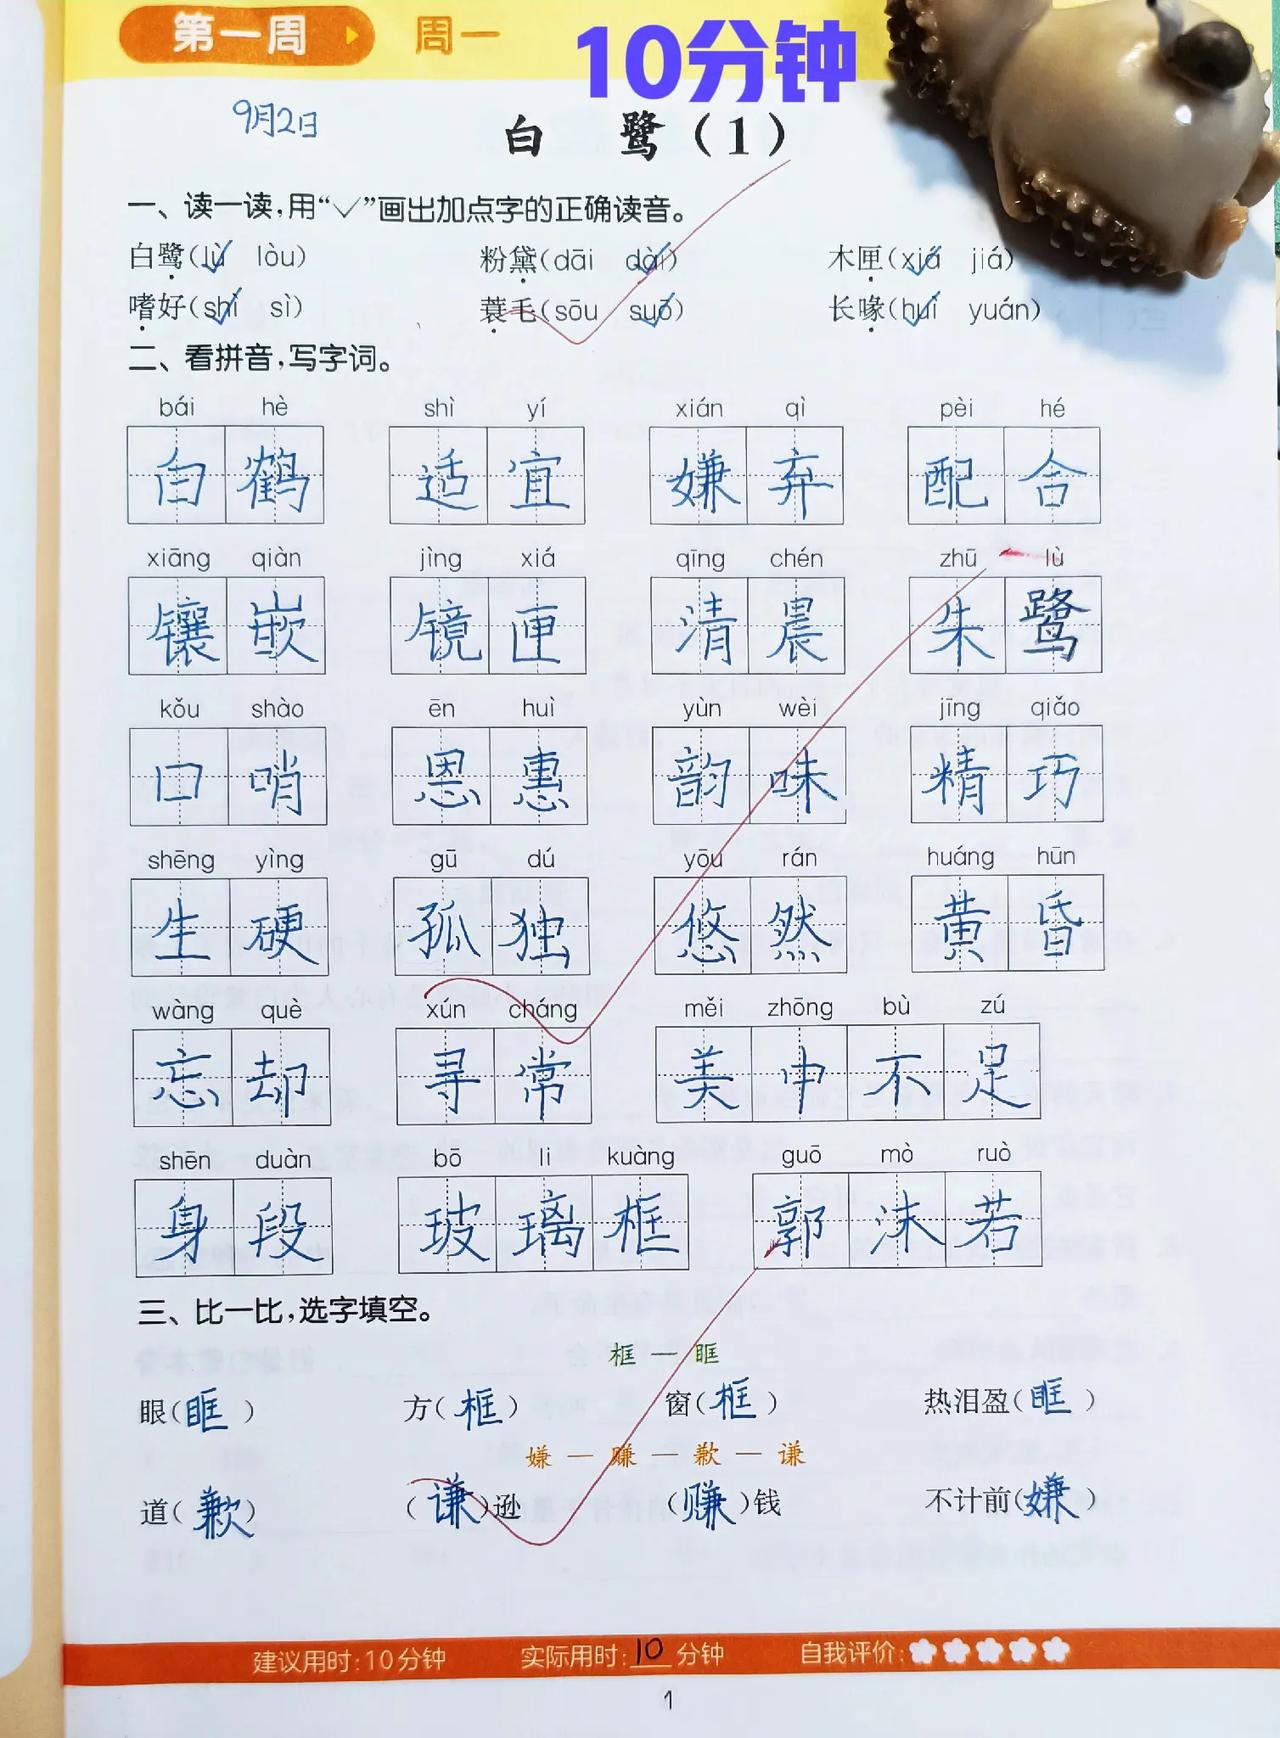 第一周 周一
10分钟
9月2日
白鹭(1)
一、读一读,用“✓”画出加点字的正确读音。
白鹭(lù✓ lòu) 粉黛(dāi dài✓) 木匣(xiá✓ jiá)
嗜好(shì✓ sì) 蓑毛(sōu suō✓) 长喙(huì✓ yuán)
二、看拼音,写字词。
bái hè shì yí xián qì pèi hé
白鹤 适宜 嫌弃 配合
xiāng qiàn jìng xiá qīng chén zhū lù
镶嵌 镜匣 清晨 朱鹭
kǒu shào ēn huì yùn wèi jīng qiǎo
口哨 恩惠 韵味 精巧
shēng yìng gū dú yōu rán huáng hūn
生硬 孤独 悠然 黄昏
wàng què xún cháng měi zhōng bù zú
忘却 寻常 美中不足
shēn duàn bō li kuàng guō mò ruò
身段 玻璃框 郭沫若
三、比一比,选字填空。
框 — 眶
眼(眶) 方(框) 窗(框) 热泪盈(眶)
嫌 — 赚 — 歉 — 谦
道(歉) (谦)逊 (赚)钱 不计前(嫌)
建议用时:10分钟 实际用时:10分钟 自我评价:
1